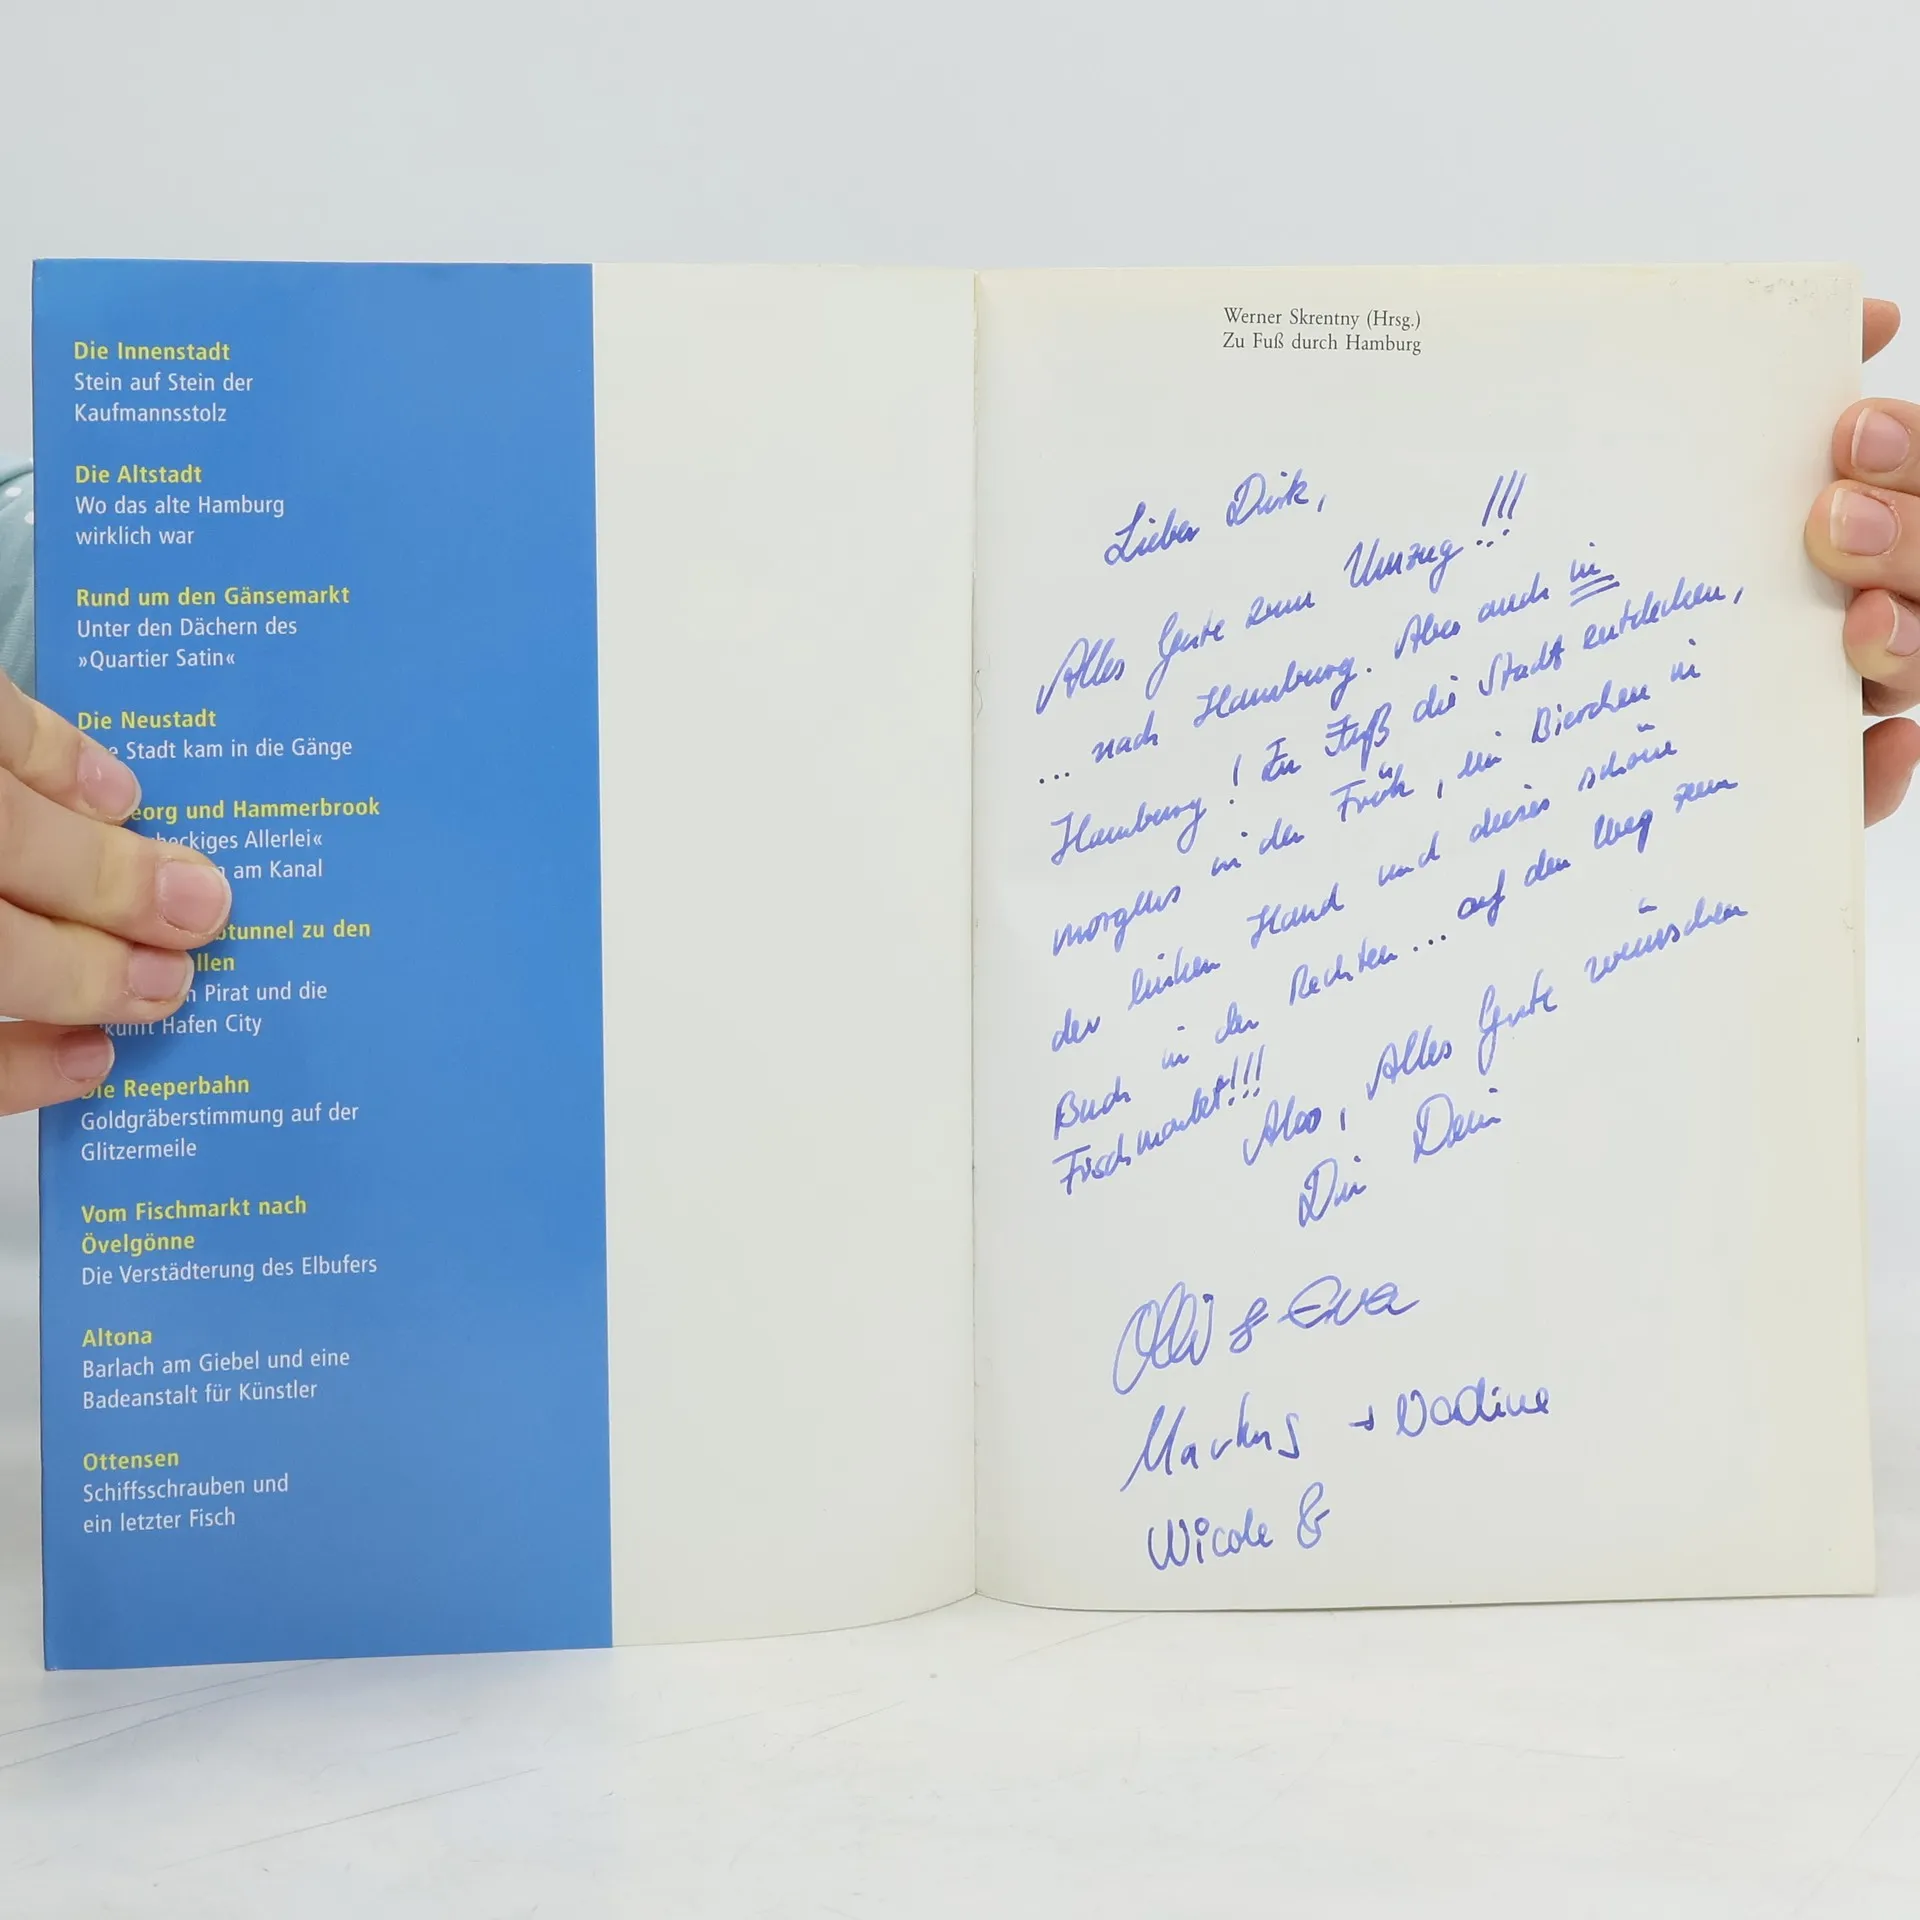 Die Innenstadt
Stein auf Stein der
Kaufmannsstolz
Die Altstadt
Wo das alte Hamburg
wirklich war
Rund um den Gänsemarkt
Unter den Dächern des
»Quartier Satin«
Die Neustadt
Stadt kam in die Gänge
und Hammerbrook
Allerlei«
am Kanal
zu den
Pirat und die
Hafen City
Die Reeperbahn
Goldgräberstimmung auf der
Glitzermeile
Vom Fischmarkt nach
Övelgönne
Die Verstädterung des Elbufers
Altona
Barlach am Giebel und eine
Badeanstalt für Künstler
Ottensen
Schiffsschrauben und
ein letzter Fisch
Werner Skrentny (Hrsg.)
Zu Fuß durch Hamburg
Lieber Dirk,
Alles Gute zum Umzug...!!!
... nach Hamburg. Aber auch in
Hamburg! Zu Fuß die Stadt entdecken,
morgens in der Früh, ein Bierchen in
der linken Hand und dieses schöne
Buch in der Rechten... auf dem Weg zum
Fischmarkt!!!
Also, Alles Gute wünschen
Dir Dein
Olli & Eva
Markus + Nadine
Nicole &